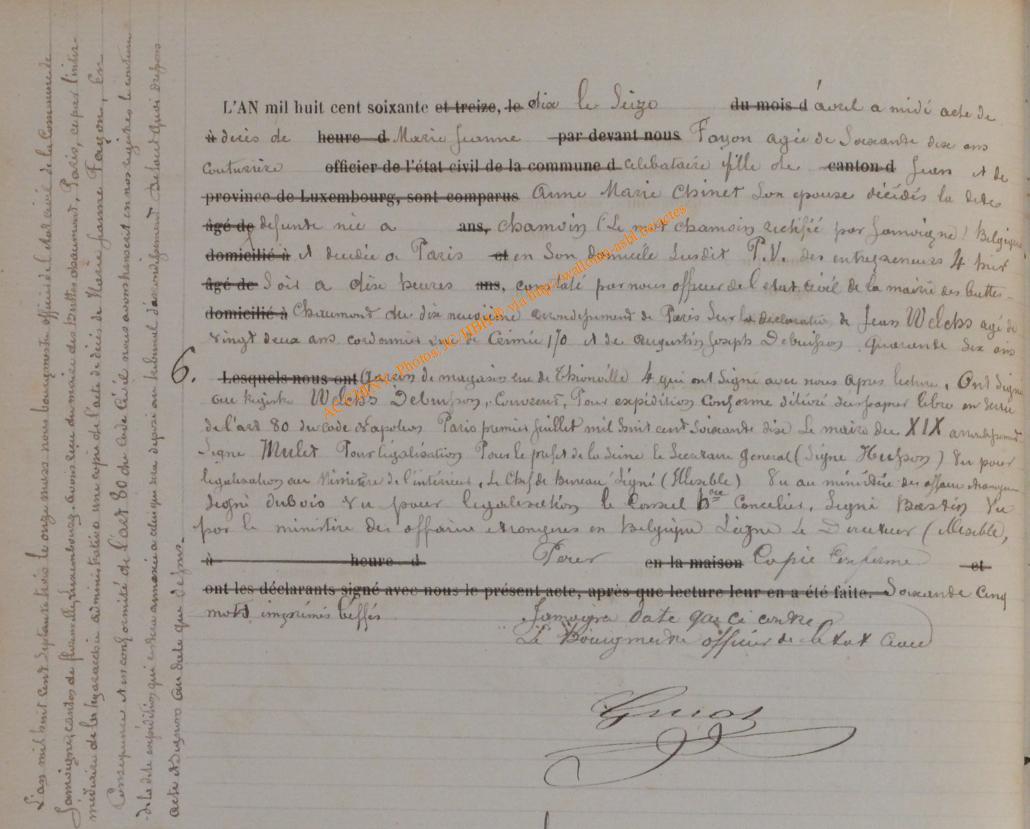 L'AN mil huit cent soixante et treize, le dix le Seize du mois d'avril a midi acte de
à decès de heure d Marie Jeanne par devant nous Fayon agée de Soixante dix ans
Couturière officier de l'état civil de la commune d celibataire fille de canton d Jean et de
province de Luxembourg, sont comparus Anne Marie Chinet Son epouse décédés la dite
âgé de defunte née a ans, Chamoin (Le mot Chamoin rectifié par Jamoigne) Belgique
domicilié à et decedée a Paris et en Son domicile Susdit P.V. des entrepreneurs 4 hier
âgé de Soir a dix heures ans, constaté par nous officier de l'etat civil de la mairie des buttes-
domicilié à Chaumont du dix neuvième arrondissement de Paris Sur la declaration de Jean Welchs agé de
vingt deux ans cordonnier rue de Crimée 170 et de Augustin Joseph Debuisson, quarante Six ans
6. Lesquels nous ont Garçon de magasin rue de Thionville 4 qui ont Signé avec nous après lecture. Ont Signé
au Registre Welchs Debuisson, Pour expédition Conforme délivré sur papier libre en
de l'art 80 du code Napoleon Paris premier Juillet mil huit cent Soixante dix Le maire du XIX arrondissement
Signé Mulet Pour légalisation Pour le prefet de la Seine le Secretaire General (Signé Husson) Vu pour
legalisation au Ministère de l'intérieur, Le Chef de Bureau Signé (Illisible) Vu au ministère des affaires etrangères
Signé Dubois Vu pour legalisation le Consul Signé Bastin Vu
par le ministère des affaires etrangeres en Belgique Signé Le Directeur (Illisible,
à heure d Pour en la maison Copie Conforme et
ont les déclarants signé avec nous le présent acte, après que lecture leur en a été faite. Soixante Cinq
mots imprimés biffés Jamoigne date que ci contre
Le Bourgmestre officier de l'etat civil
L'an mil huit cent septante trois le onze mars nous bourgmestre officier de l'etat civil de la Commune de
Jamoigne, canton de Florenville, Luxembourg, avons reçu du maire des Buttes chaumont, Paris, et par l'inter-
médiaire de la hyerarchie administrative une copie de l'acte de décès de Marie Jeanne Fayon, En
Conséquence et en conformité de l'art 80 du Code Civil nous avons transcrit en nos registres le contenu
de la dite expédition qui restera annexée a celui qui sera deposé au tribunal d'arrondissement
acte et Signons au date que dessus.
ACCMENV - Photos de LIBRE via https://wallonia-asbl.be/actes